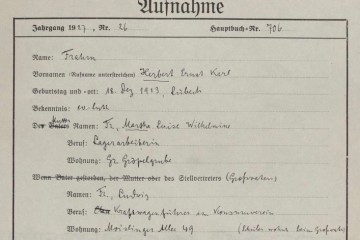 Aufnahme
Jahrgang 1927, Nr. 26 Hauptbuch-Nr. 706
Name: Frahm
Vornamen (Rufname unterstreichen) Herbert Ernst Karl
Geburtstag und -ort: 18. Dez 1913, Lübeck
Bekenntnis: ev-luth
Des Vaters Namen: Fr., Martha Luise Wilhelmine
Beruf: Lagerarbeiterin
Wohnung: Gr. Gröpelgrube
Wenn Vater gestorben, der Mutter oder des Stellvertreters (Großvater)
Namen: Fr., Ludwig
Beruf: Kraftwagenführer im Konsumverein
Wohnung: Moislinger Allee 49 (Schüler wohnt beim Großvater)